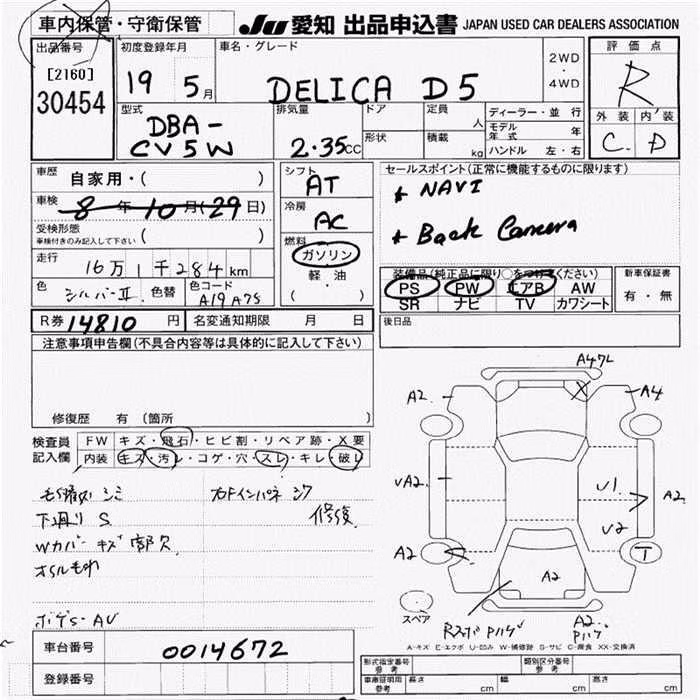 車内保管・守衛保管
JU 愛知 出品申込書 JAPAN USED CAR DEALERS ASSOCIATION
出品番号
[2160]
30454
初度登録年月
19 5月
車名・グレード
DELICA D5
2WD
・
4WD
評価点
R
外装 内装
C D
型式
DBA-
CV5W
排気量
2.35cc
ドア
形状
定員 人
積載 kg
ディーラー・並行
モデル年式 年
ハンドル 左・右
車歴
自家用・( )
車検
8年10月(29日)
受検形態
車検付きのみ記入して下さい ( )
走行
16万1千284km
色
シルバーII
色替
色コード
A19 A75
シフト
AT
冷房
AC
燃料
ガソリン
軽油
( ・ )
セールスポイント(正常に機能するものに限ります)
* NAVI
* Back Camera
装備品(純正品に限り○をつけてください)
PS PW エアB AW
SR ナビ TV カワシート
新車保証書
有・無
R券 14810円
名変通知期限 月 日
後日品
注意事項申告欄(不具合内容等は具体的に記入して下さい)
修復歴 有(箇所
検査員記入欄
FW キズ・飛石・ヒビ割・リペア跡・X要
内装 キズ・汚レ・コゲ・穴・スレ・キレ・破レ
シミ
下廻りS
修復
Wカバーキズ部欠
オイルもれ
A47L
A2
A4
UA2
U1
A2
U2
A2
T
A2
スペア
A2
A-キズ E-エクボ U-凹み W-補修跡 S-サビ C-腐食 XX-交換済
車台番号
0014672
登録番号
型式指定番号
参考
類別区分番号
参考
車庫証明用
参考
長さ cm
幅 cm
高さ cm